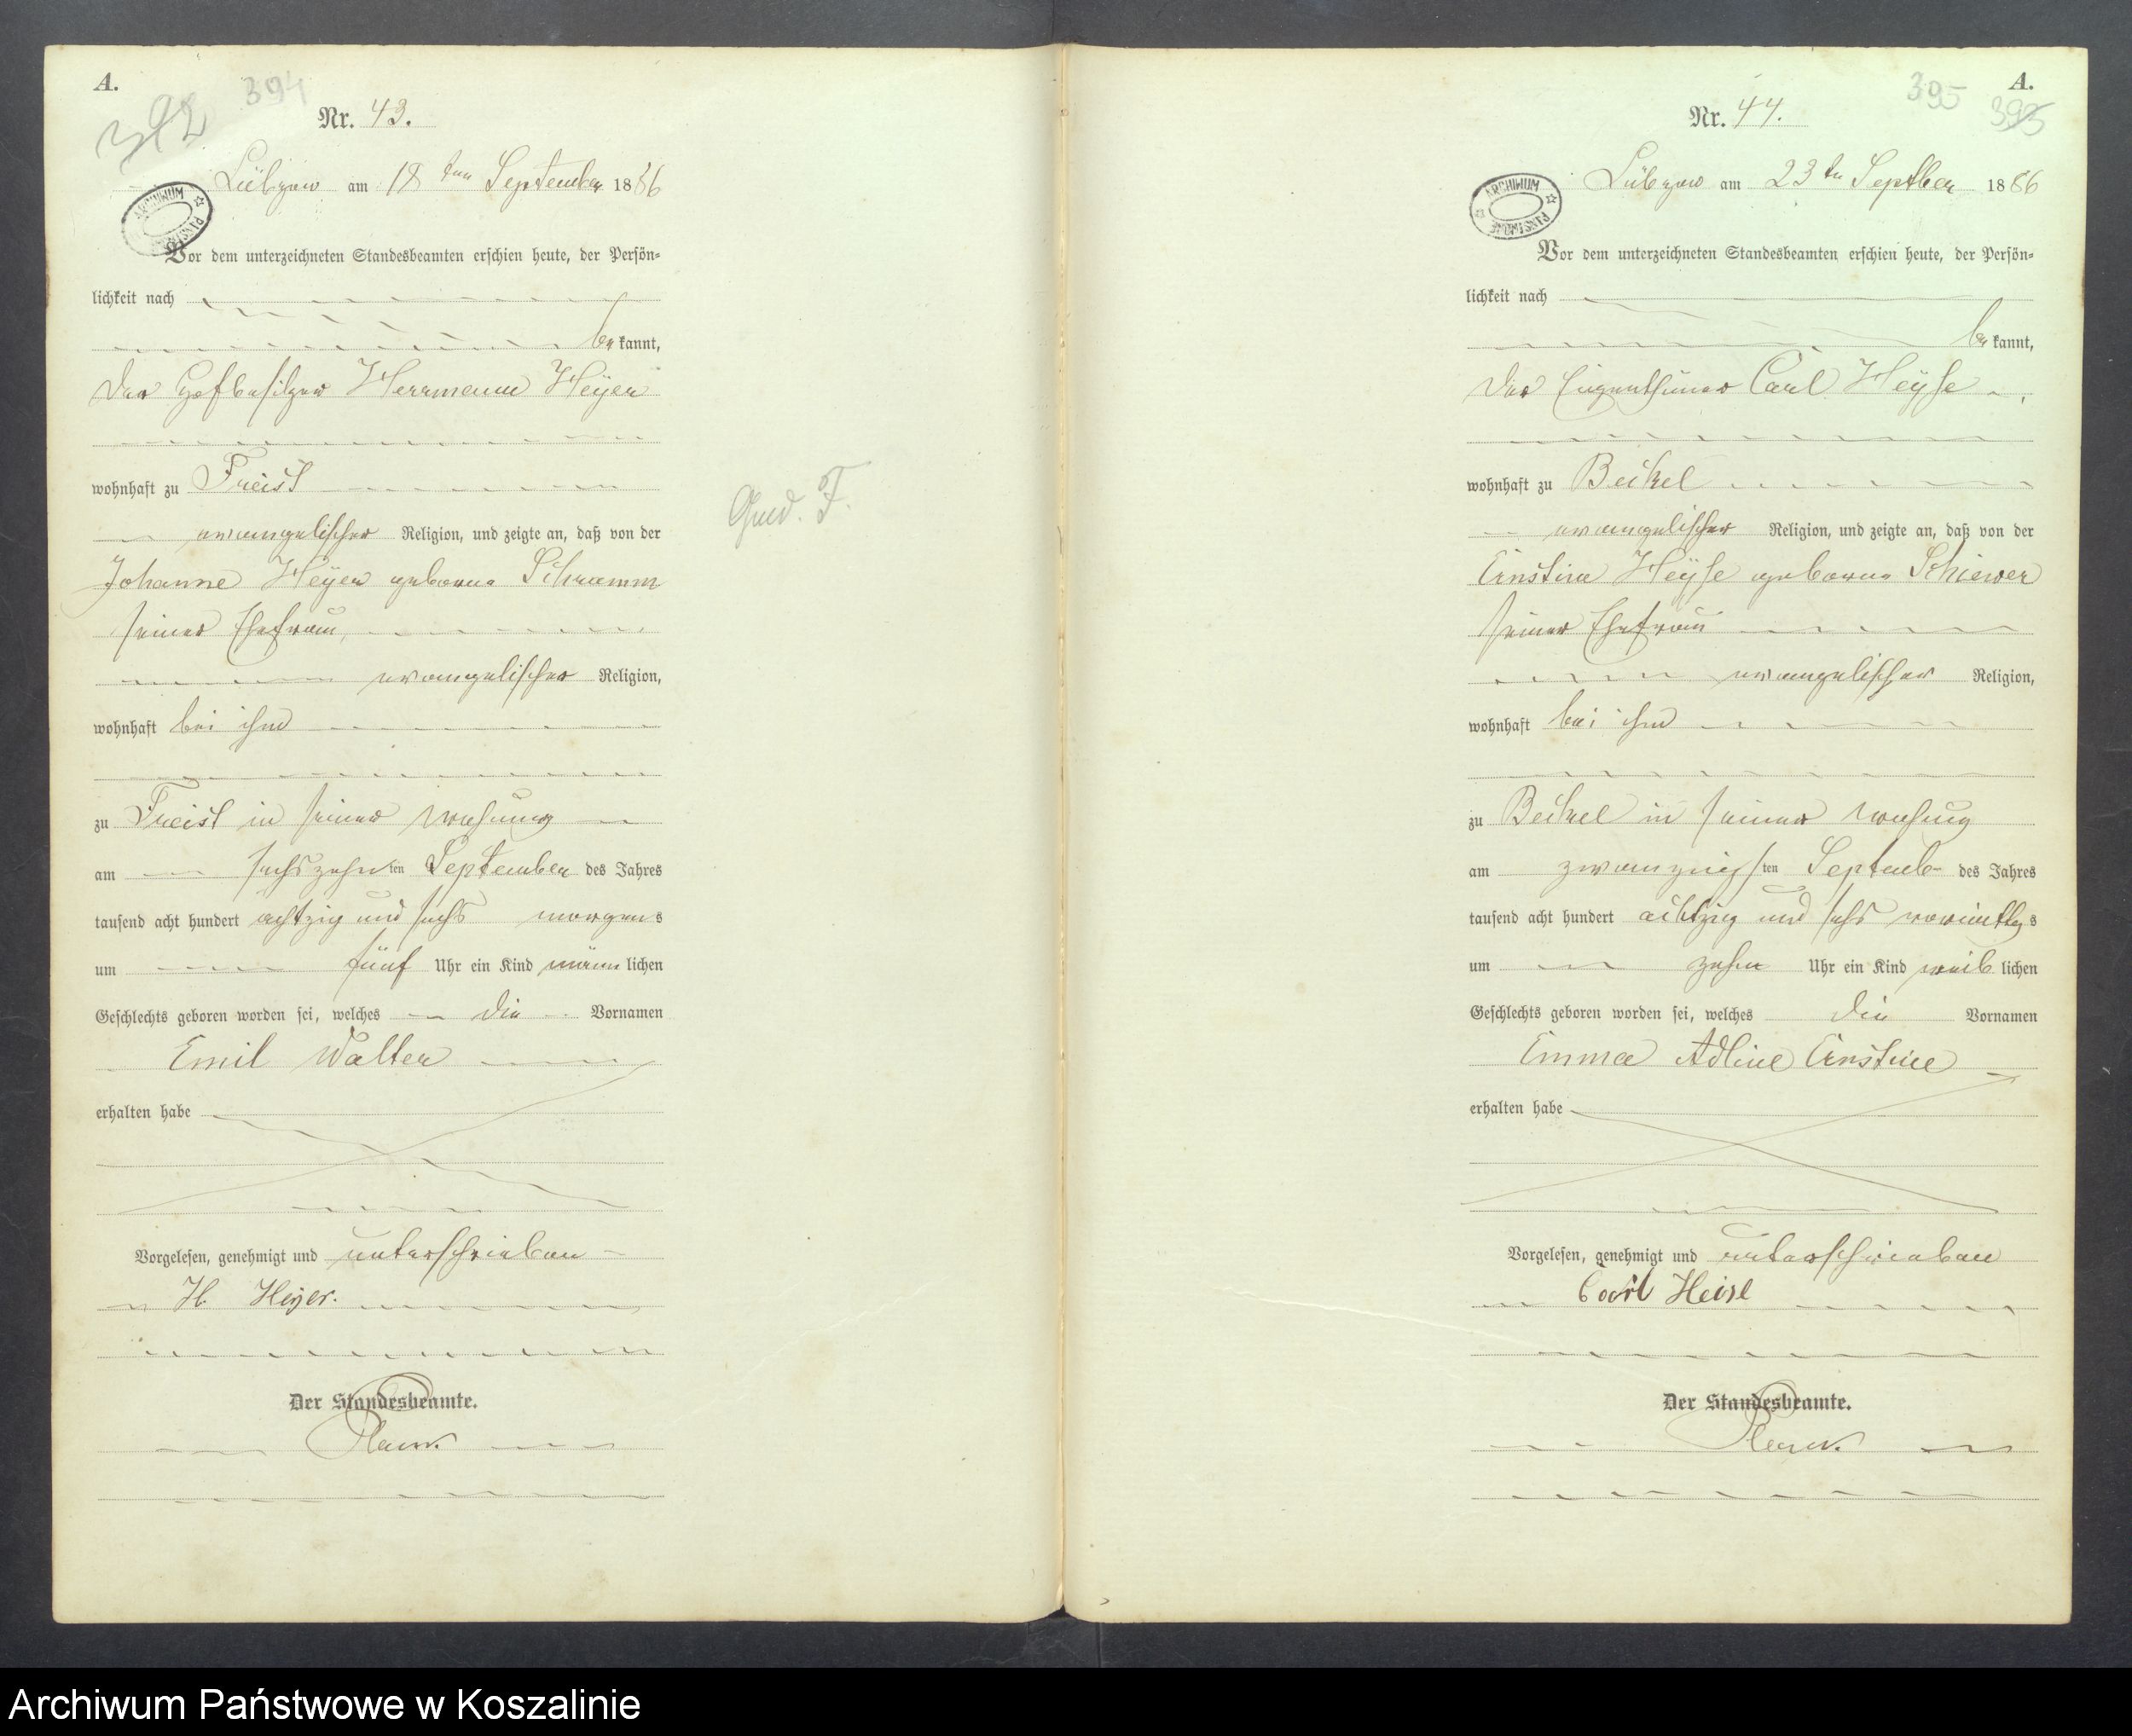 A.
394
392
Nr. 43.
Lübzow am 18 ten September 1886
ARCHIWUM
Vor dem unterzeichneten Standesbeamten erschien heute, der Persön-
lichkeit nach
be kannt,
der Hofbesitzer Herrmann Heyer
wohnhaft zu Freist
evangelischer Religion, und zeigte an, daß von der
Johanne Heyer geborne Schramm
seiner Ehefrau,
evangelischer Religion,
wohnhaft bei ihm
zu Freist in seiner Wohnung
am sechszehnten September des Jahres
tausend acht hundert achtzig und sechs morgens
um fünf Uhr ein Kind männlichen
Geschlechts geboren worden sei, welches die Vornamen
Emil Walter
erhalten habe
Vorgelesen, genehmigt und unterschrieben
H. Heyer.
Der Standesbeamte.
A.
395
393
Nr. 44.
Lübzow am 23 tn Septber 1886
ARCHIWUM
Vor dem unterzeichneten Standesbeamten erschien heute, der Persön-
lichkeit nach
be kannt,
der Eigenthümer Carl Heyse
wohnhaft zu Beckel
evangelischer Religion, und zeigte an, daß von der
Ernstine Heyse geborne Schiewer
seiner Ehefrau
evangelischer Religion,
wohnhaft bei ihm
zu Beckel in seiner Wohnung
am zwanzigsten Septemb- des Jahres
tausend acht hundert achtzig und sechs vormittgs
um zehn Uhr ein Kind weiblichen
Geschlechts geboren worden sei, welches die Vornamen
Emma Adline Ernstine
erhalten habe
Vorgelesen, genehmigt und unterschrieben
Carl Heise
Der Standesbeamte.
Archiwum Państwowe w Koszalinie